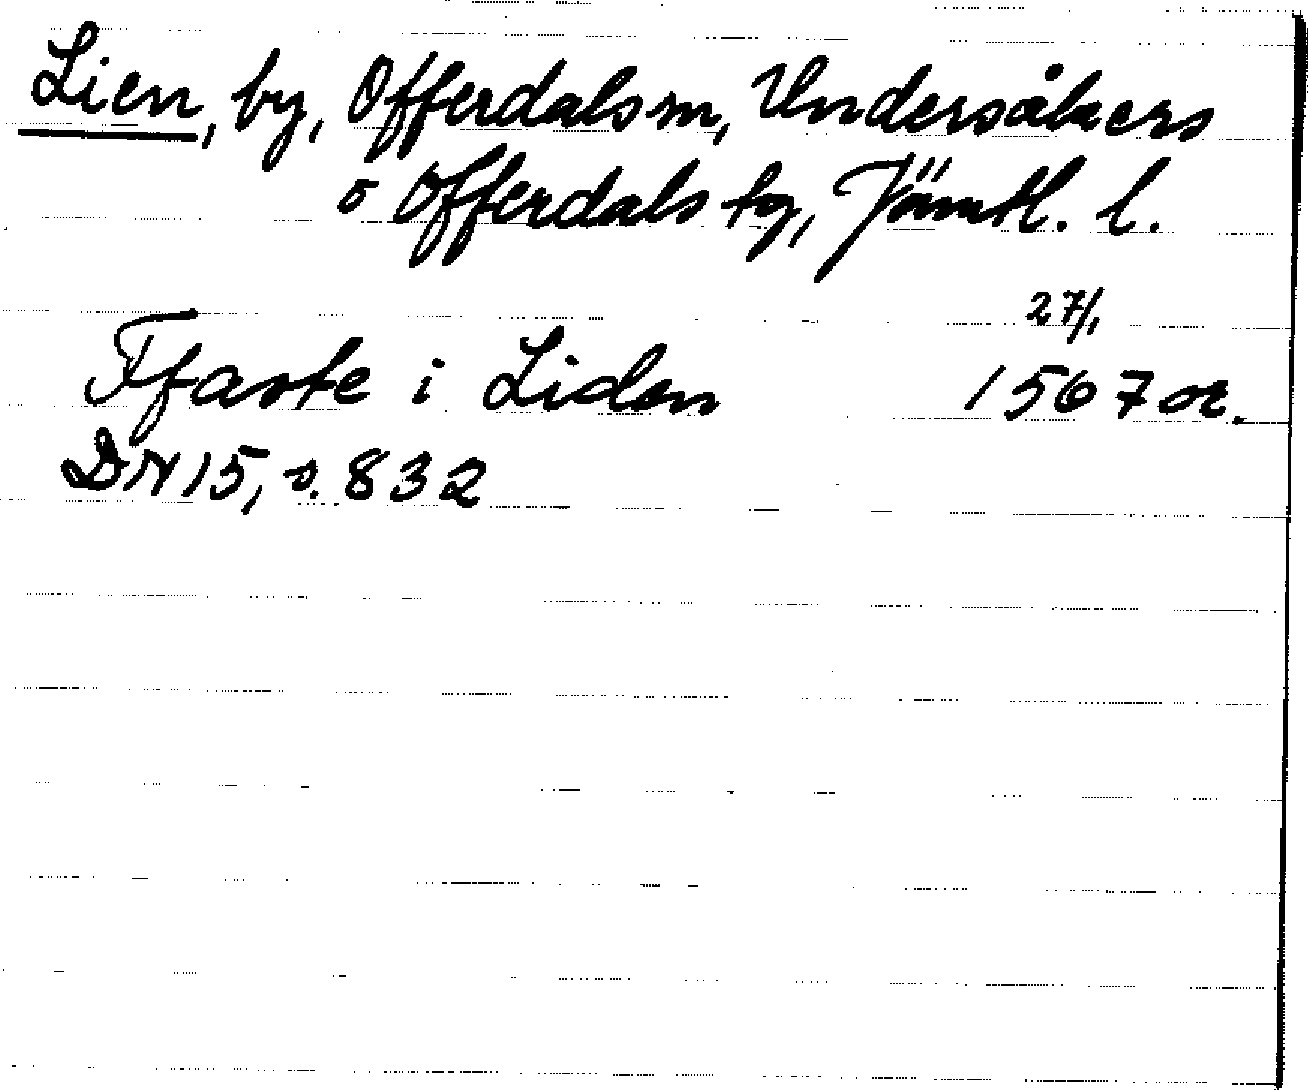 Lien, by, Offerdals sn, Undersåkers
o Offerdals tg, Jämtl. l.
27/1
Ffaste i Liden 1567 or.
DN 15, s. 832